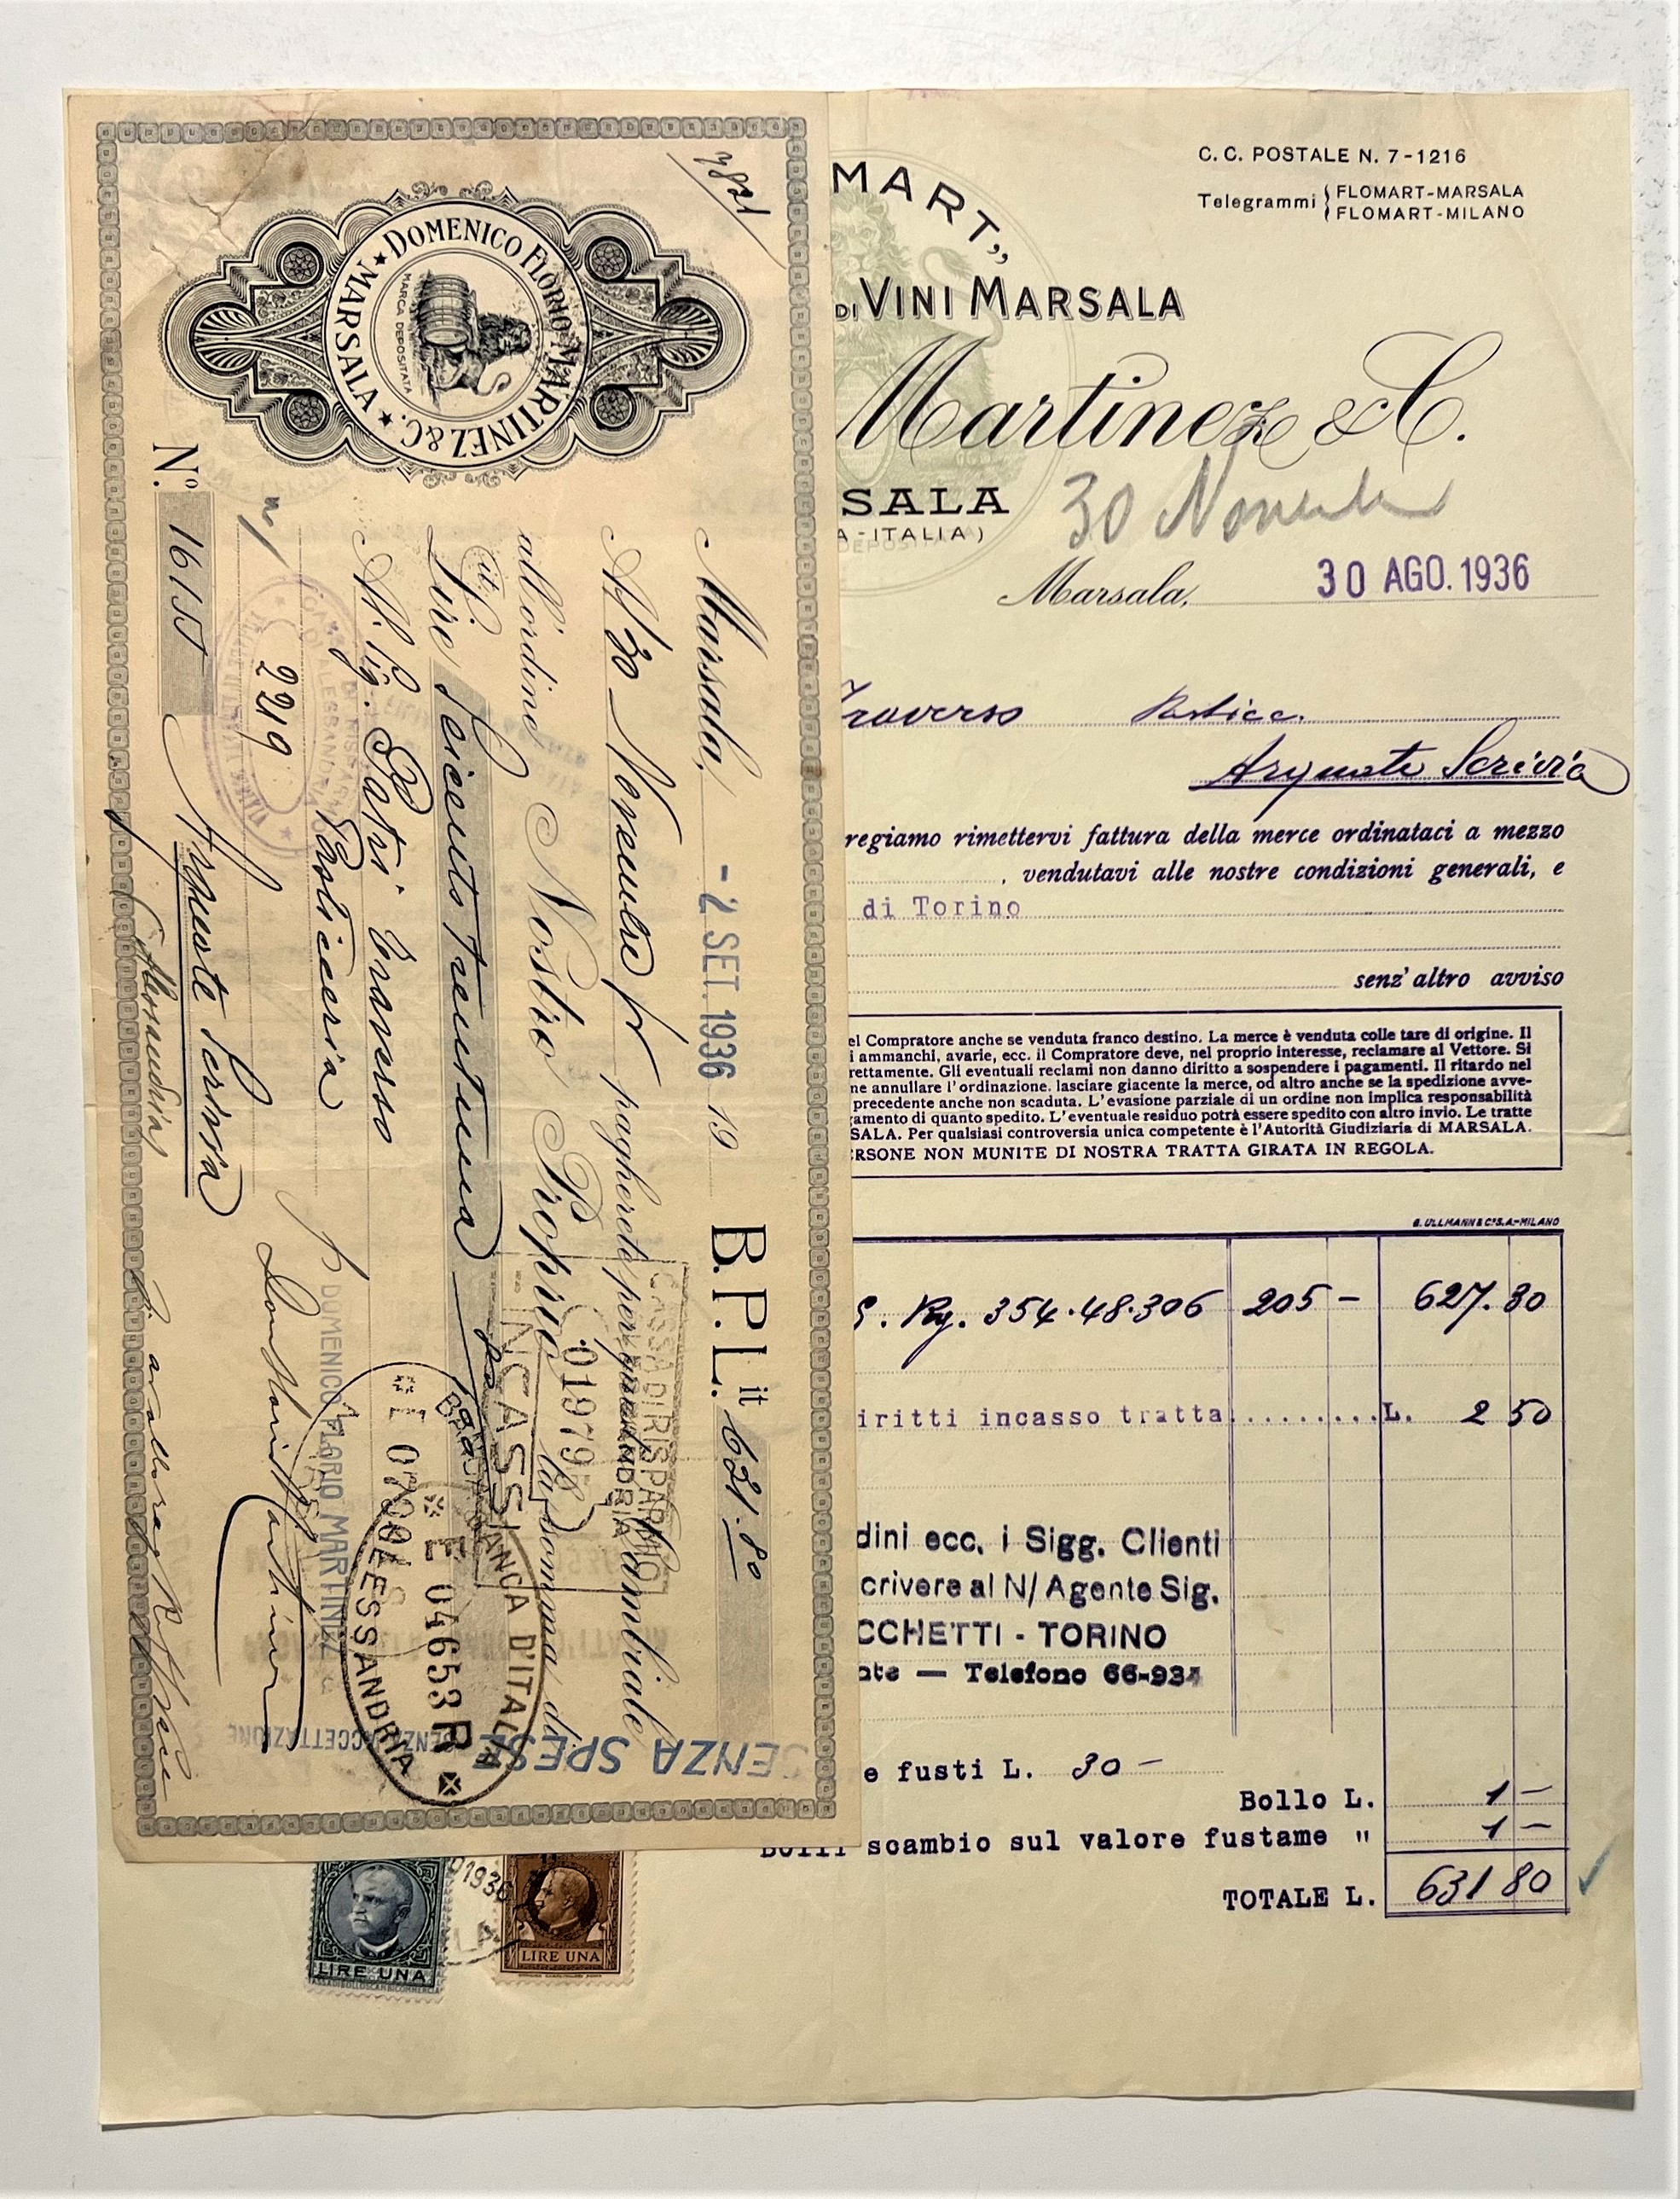 DOMENICO FLORIO MARTINEZ & C. ★ MARSALA ★
MARCA DEPOSITATA
No. 1615
Marsala, -2 SET. 1936 19 B. P. L. it 631.80
Al 30 Novembre pagherete per questa Cambiale
all'ordine Nostro Proprio la somma di
Lire it. Seicento Trentuna
Al Sig. Patri Traverso
Pasticceria
2219
Arquata Scrivia
(Alessandria)
DOMENICO FLORIO MARTINEZ
CASSA DI RISPARMIO
ALESSANDRIA
01979
INCASSI
BANCA D'ITALIA
E 04653 R
ALESSANDRIA
SENZA SPESE
SENZA ACCETTAZIONE
MART„
C. C. POSTALE N. 7-1216
Telegrammi { FLOMART-MARSALA
FLOMART-MILANO
DI VINI MARSALA
Martinez & C.
SALA
A-ITALIA)
30 Novembre
Marsala, 30 AGO. 1936
Traverso Pasticc.
Arquata Scrivia
regiamo rimettervi fattura della merce ordinataci a mezzo
, vendutavi alle nostre condizioni generali, e
di Torino
senz'altro avviso
el Compratore anche se venduta franco destino. La merce è venduta colle tare di origine. Il
i ammanchi, avarie, ecc. il Compratore deve, nel proprio interesse, reclamare al Vettore. Si
rettamente. Gli eventuali reclami non danno diritto a sospendere i pagamenti. Il ritardo nel
ne annullare l'ordinazione. lasciare giacente la merce, od altro anche se la spedizione avve-
precedente anche non scaduta. L'evasione parziale di un ordine non implica responsabilità
amento di quanto spedito. L'eventuale residuo potrà essere spedito con altro invio. Le tratte
SALA. Per qualsiasi controversia unica competente è l'Autorità Giudiziaria di MARSALA.
RSONE NON MUNITE DI NOSTRA TRATTA GIRATA IN REGOLA.
G. ULLMANN & C° S.A.-MILANO
Kg. 354.48.306 205 - 627.30
iritti incasso tratta..........L. 2 50
dini ecc. i Sigg. Clienti
crivere al N/ Agente Sig.
CCHETTI - TORINO
— Telefono 66-934
e fusti L. 30 -
Bollo L. 1 -
Bolli scambio sul valore fustame " 1 -
TOTALE L. 631 80
1936
LIRE UNA
LIRE UNA